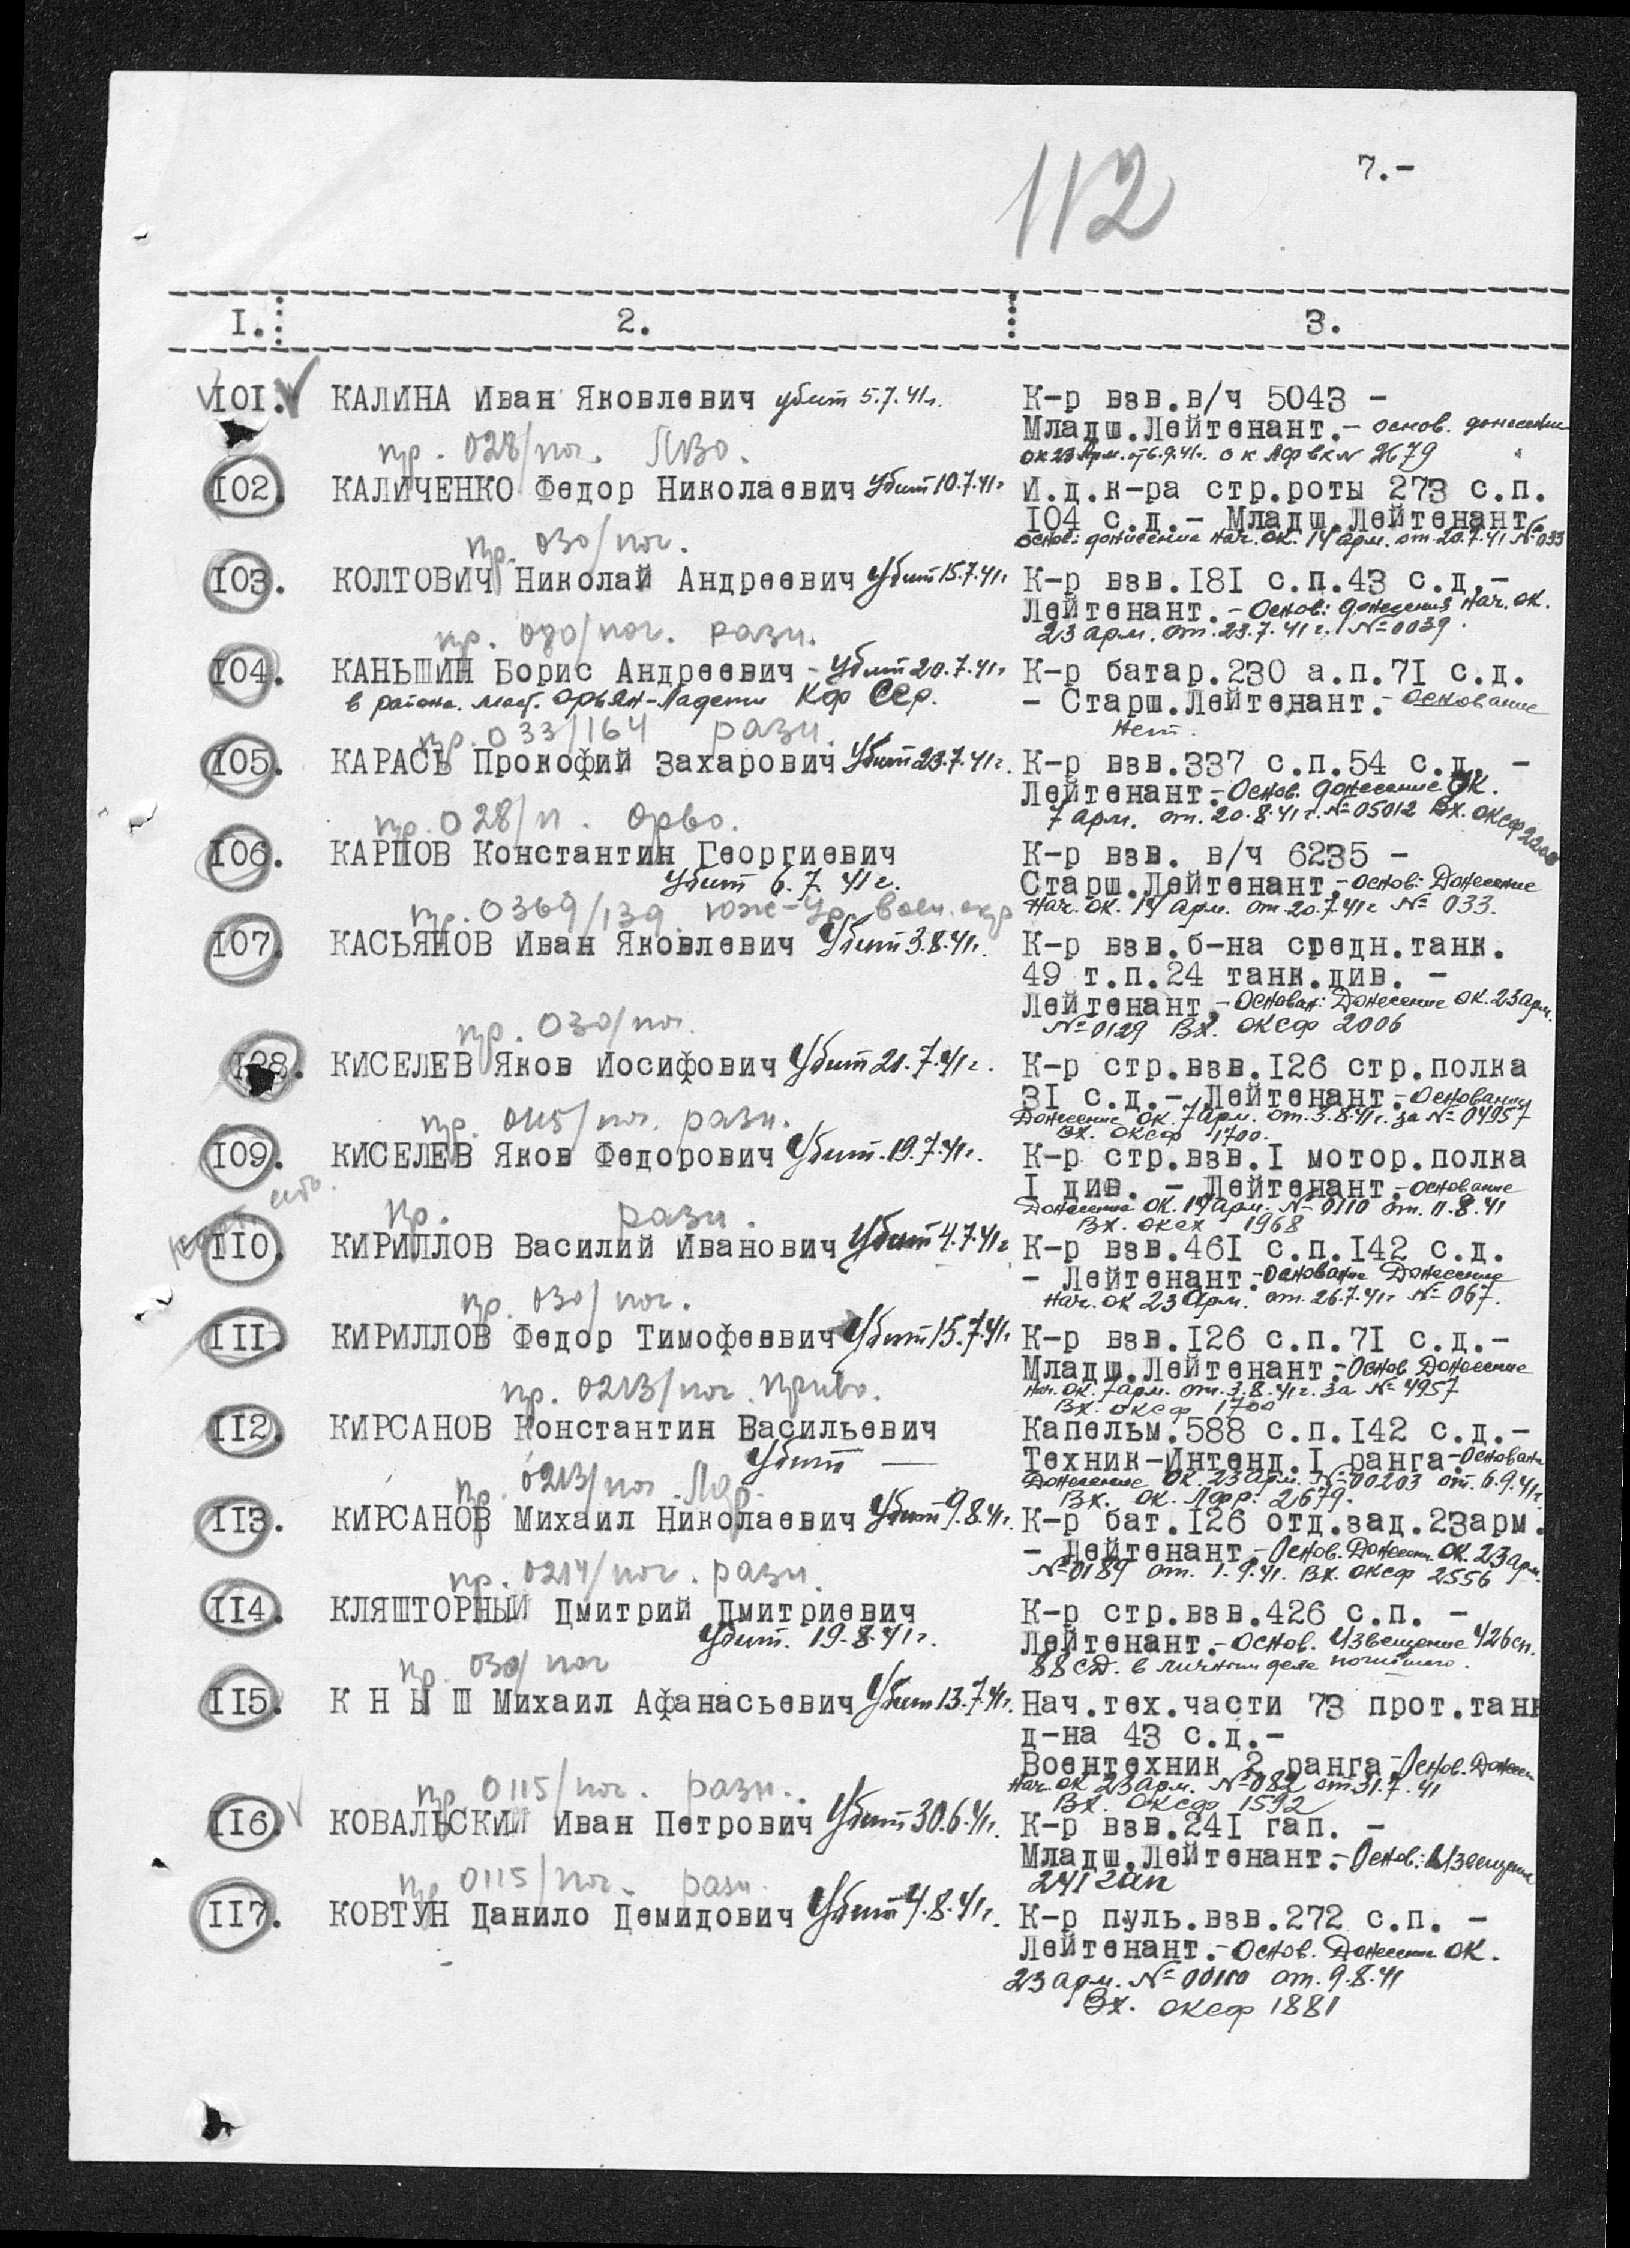 112
7.-
I. 2. 3.
101. КАЛИНА Иван Яковлевич убит 5.7.41г. К-р взв.в/ч 5043 -
Младш.Лейтенант.- основ. донесение
пр. 028/пог. ЛВО. ок 23 Арм. от 6.9.41г. ок ЛФ вх N 2679
102. КАЛИЧЕНКО Федор Николаевич Убит 10.7.41г И.д.к-ра стр.роты 273 с.п.
104 с.д.- Младш.Лейтенант.
пр. 030/пог. основ: донесение нач. ок. 14 арм. от 20.7.41 № 033
103. КОЛТОВИЧ Николай Андреевич Убит 15.7.41г К-р взв.181 с.п.43 с.д.-
Лейтенант.- Основ: донесения нач. ок.
пр. 030/пог. разн. 23 арм. от. 23.7.41г. №0039.
104. КАНЬШИН Борис Андреевич - Убит 20.7.41г К-р батар.230 а.п.71 с.д.
в районе. мест. Орьян-Ладети Кф ССр. - Старш.Лейтенант.- основание
пр. 033/164 разн. нет.
105. КАРАСЬ Прокофий Захарович Убит 23.7.41г. К-р взв.337 с.п.54 с.д. -
Лейтенант.- Основ. донесение ОК.
пр. 028/п. Орво. 7 арм. от. 20.8.41г. № 05012 Вх. ОКСФ 2200
106. КАРПОВ Константин Георгиевич К-р взв. в/ч 6235 -
Убит 6.7.41г. Старш.Лейтенант.- основ: Донесение
пр. 0369/139 Юж-Ур. воен. окр Нач. ок. 14 арм. от 20.7.41г № 033.
107. КАСЬЯНОВ Иван Яковлевич Убит 3.8.41г. К-р взв.б-на средн.танк.
49 т.п.24 танк.див. -
Лейтенант.- Основан: Донесение ок. 23 арм.
пр. 030/пог. № 0129 Вх. ОКСФ 2006
108. КИСЕЛЕВ Яков Иосифович Убит 21.7.41г. К-р стр.взв.126 стр.полка
31 с.д.- Лейтенант.- Основании
пр. 0115/пог. разн. Донесение ок. 7 арм. от. 3.8.41г. за № 04957
Вх. ОКСФ 1700.
109. КИСЕЛЕВ Яков Федорович Убит. 19.7.41г. К-р стр.взв.1 мотор.полка
1 див. - Лейтенант.- основание
Донесение ОК. 14 арм. № 0110 от. 11.8.41
пр. разн. Вх. 1968
110. КИРИЛЛОВ Василий Иванович Убит 4.7.41г К-р взв.461 с.п.142 с.д.
- Лейтенант.- Основание Донесение
пр. 030/пог. нач. ок 23 Арм. от. 26.7.41г № 067.
111. КИРИЛЛОВ Федор Тимофеевич Убит 15.7.41г К-р взв.126 с.п.71 с.д.-
Младш.Лейтенант.- Основ Донесение
пр. 0213/пог. Приво. нач. ок. 7 арм. от. 3.8.41г. за № 4957
Вх. ОКСФ 1700
112. КИРСАНОВ Константин Васильевич Капельм.588 с.п.142 с.д.-
Убит — Техник-Интенд.I ранга.- Основан
пр. 0213/пог Донесение ОК. 23 арм. № 00203 от. 6.9.41г.
Вх. ок. ЛФР. 2679.
113. КИРСАНОВ Михаил Николаевич Убит 9.8.41г. К-р бат.126 отд.зад.23арм.
- Лейтенант.- Основ. Донесен ОК. 23 арм.
пр. 0214/пог. разн. № 0189 от. 1.9.41. Вх. ОКСФ 2556
114. КЛЯШТОРНЫЙ Дмитрий Дмитриевич К-р стр.взв.426 с.п. -
Убит. 19.8.41г. Лейтенант.- Основ. Извещение 426 сп.
пр. 030/пог 88 СД. в личном деле погибшего.
115. К Н Ы Ш Михаил Афанасьевич Убит 13.7.41г. Нач.тех.части 73 прот.танк
д-на 43 с.д.-
Воентехник 2 ранга.- Основ. Донесен
пр 0115/пог. разн. нач. ок 23 арм. № 082 от 31.7.41
Вх. ОКСФ 1592
116. КОВАЛЬСКИЙ Иван Петрович Убит 30.6.41г. К-р взв.241 гап. -
Младш.Лейтенант.- Основ: Извещение
пр 0115/пог. разн. 241 гап
117. КОВТУН Данило Демидович Убит 4.8.41г. К-р пуль.взв.272 с.п. -
Лейтенант.- Основ. Донесение ОК.
23 арм. № 00110 от. 9.8.41
Вх. ОКСФ 1881